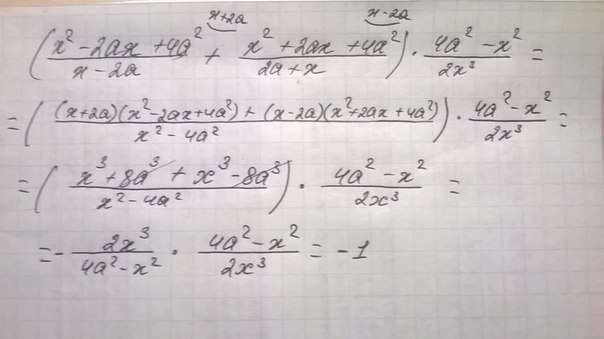 x+2a x-2a
(x² - 2ax + 4a² / x - 2a + x² + 2ax + 4a² / 2a + x) · 4a² - x² / 2x³ =
= ((x+2a)(x²-2ax+4a²) + (x-2a)(x²+2ax+4a²) / x² - 4a²) · 4a² - x² / 2x³ =
= (x³ + 8a³ + x³ - 8a³ / x² - 4a²) · 4a² - x² / 2x³ =
= - 2x³ / 4a² - x² · 4a² - x² / 2x³ = -1